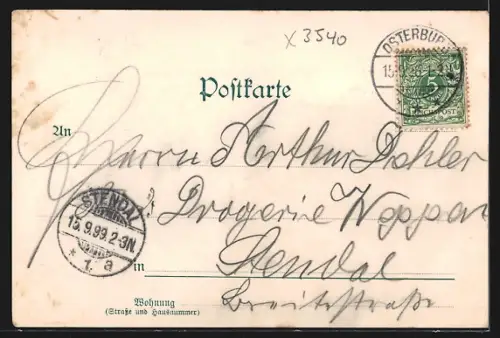 x 3540
OSTERBURG
15
5
Postkarte
An
Herrn Arthur Dahler
STENDAL
15.9.99.2-3N.
* 1. a
Drogerie
in Stendal
Breitestraße
Wohnung
(Straße und Hausnummer)